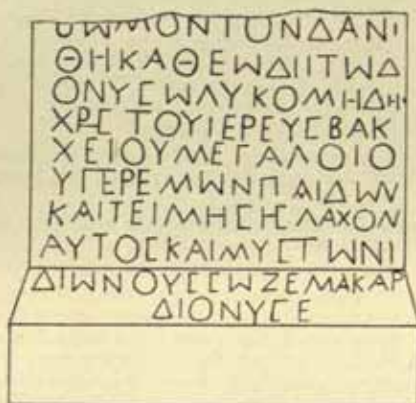 ΒΩΜΟΝΤΟΝΔΑΝΙ
ΘΗΚΑΘΕΩΔΙΙΤΩΔ
ΟΝΥϹΩΛΥΚΟΜΗΔΗ
ΧΡΗϹΤΟΥΙΕΡΕΥϹΒΑΚ
ΧΕΙΟΥΜΕΓΑΛΟΙΟ
ΥΠΕΡΕΜΩΝΠΑΙΔΩΝ
ΚΑΙΤΕΙΜΗϹΗϹΛΑΧΟΝ
ΑΥΤΟϹΚΑΙΜΥϹΤΩΝΙ
ΔΙΩΝΟΥϹϹΩΖΕΜΑΚΑΡ
ΔΙΟΝΥϹΕ